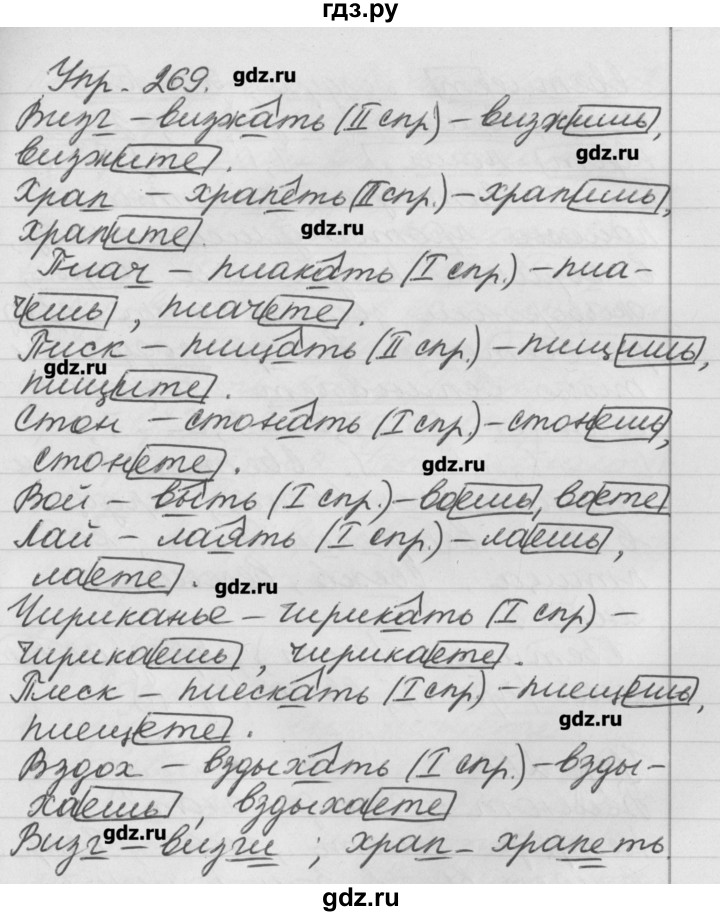 гдз.ру
Упр. 269. gdz.ru
Визг – визжать (II спр.) – визжишь,
визжите. gdz.ru
Храп храпеть (II спр.) – храпишь,
храпите gdz.ru
Плач – плакать (I спр.) – пла-
чешь, плачете.
Писк – пищать (II спр.) – пищишь,
gdz.ru
пищите.
Стон – стонать (I спр.) – стонешь,
стонете. gdz.ru
Вой – выть (I спр.) – воешь, воете
Лай – лаять (I спр.) – лаешь,
лаете gdz.ru
Чириканье – чирикать (I спр) –
чирикаешь, чирикаете.
Плеск – плескать (I спр) – плещешь,
gdz.ru
плещете.
Вздох – вздыхать (I спр.) – взды-
хаешь, вздыхаете
gdz.ru
Визг – визги ; храп – храпеть
gdz.ru